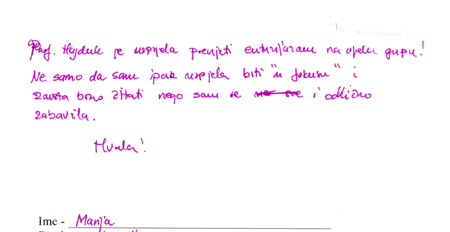 Prof. Hajduk je uspjela prenijeti entuzijazam na cijelu grupu!
Ne samo da sam ipak uspjela biti "u fokusu" i
zaista brzo čitati nego sam se i odlično
zabavila.
Hvala!
Ime - Manja